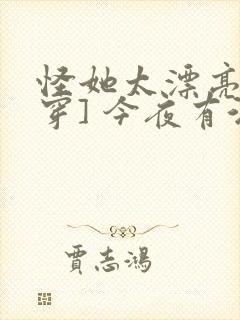 怪她太漂亮
穿]今夜有
贾志鸿